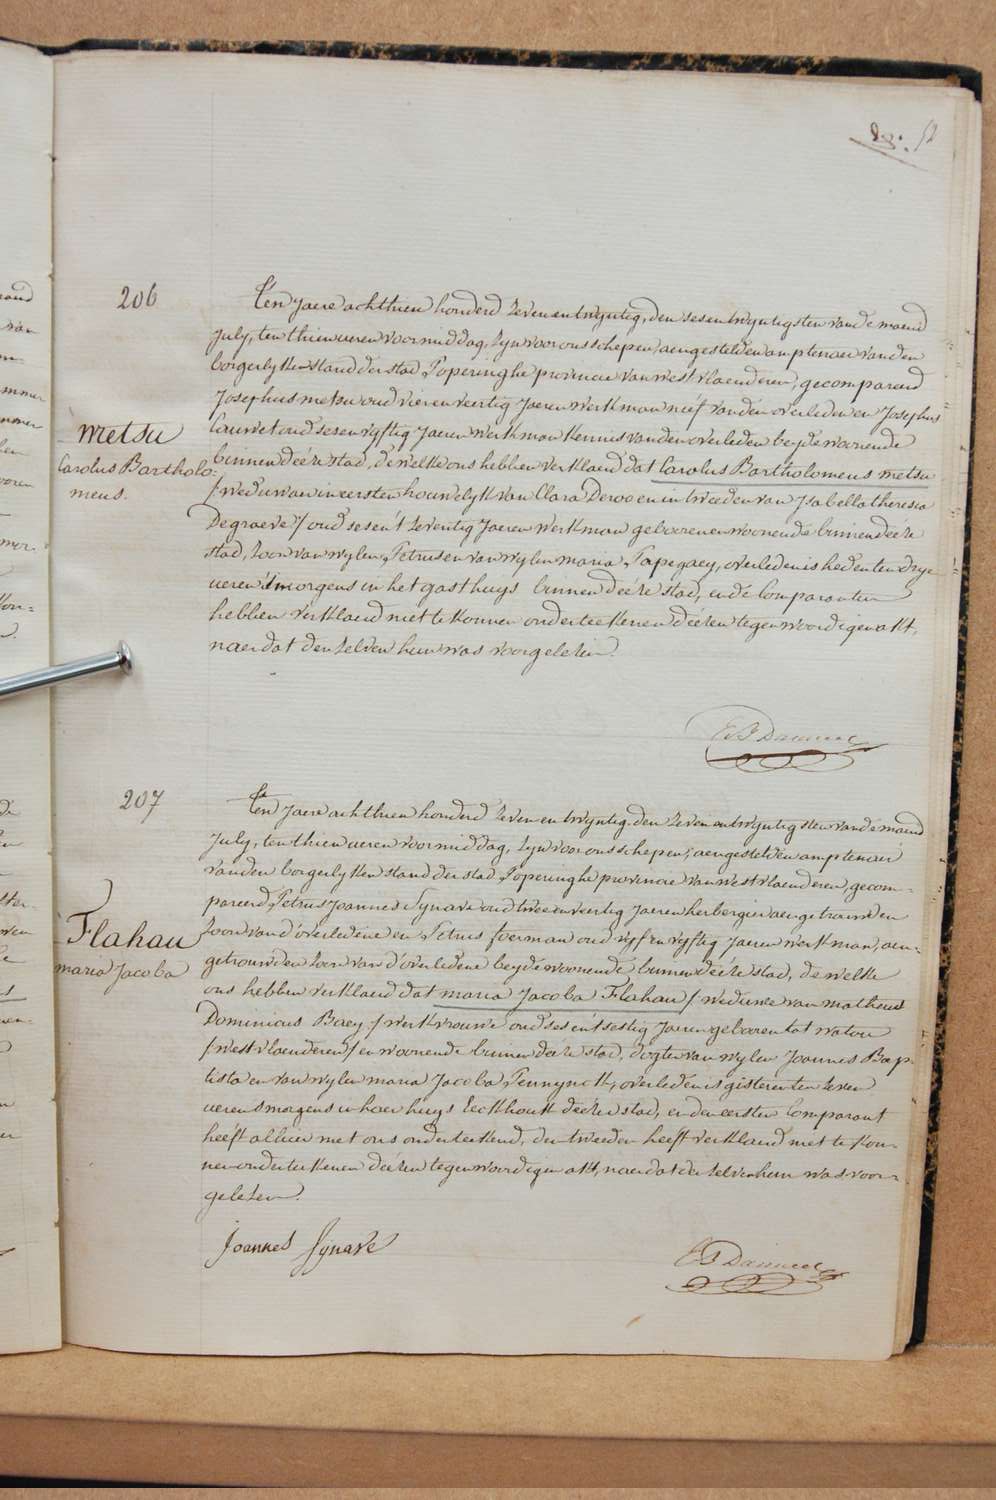 52
206
Ten jaere achthien honderd Zeven en twyntig, den sesentwyntigsten van de maend
july, ten thien ueren voormiddag, Zyn voor ons schepen, aengestelden amptenaer van den
borgerlyken stand der stad Poperinghe provincie van west vlaenderen, gecompareerd
Josephus metsu oud vierenveertig Jaeren werkman neef van den overleden en Josephus
Cauwet oud sesenvyftig Jaeren werkman kennis van den overleden beyde woonende
binnen deéze stad, de welke ons hebben verklaerd dat Carolus Bartholomeus metsu
/ weduwaer in eersten houwelyk van Clara Deroo en in tweeden van Isabella theresia
Degraeve / oud sesen't Zeventig Jaeren werkman geboren en woonende binnen deéze
stad, Zoon van wylen Petrus en van wylen maria Papegaey, overleden is heden ten drye
ueren 's morgens in het gasthuys binnen deéze stad, ende Comparanten
hebben verklaerd niet te konnen onderteekenen deézen tegenwoordigen akt,
naer dat den Zelven hun was voorgelezen.
metsu
Carolus Bartholo-
meus.
207
Ten jaere achthien honderd Zeven en twyntig den Zevenentwyntigsten van de maend
july, ten thien ueren voormiddag, Zyn voor ons schepen, aengestelden amptenaer
van den borgerlyken stand der stad Poperinghe provincie van westvlaenderen, gecom-
pareerd Petrus Joannes Synave oud tweeenveertig Jaeren herbergier aengetrouwden
Zoon van d'overledene en Petrus foerman oud vyfenvyftig Jaeren werkman, aen-
getrouwden Zoon van d'overledene beyde woonende binnen deéze stad, de welke
ons hebben verklaerd dat maria Jacoba Flahau / weduwe van matheus
Dominicus Baey / werkvrouwe oud sesen't sestig Jaeren geboren tot watou
/ west-vlaenderen / en woonende binnen deéze stad, dogter van wylen Joannes Bap-
tista en van wylen maria Jacoba Pennynck, overleden is gisteren ten Zeven
ueren smorgens in haer huys Eeckhoutt deézer stad, en den eersten Comparant
heéft alhier met ons onderteekend, den tweeden heeft verklaerd niet te kon-
nen onderteekenen deézen tegenwoordigen akt, naer dat den Zelven hun was voor-
gelezen.
Flahau
maria Jacoba
Joannes Synave